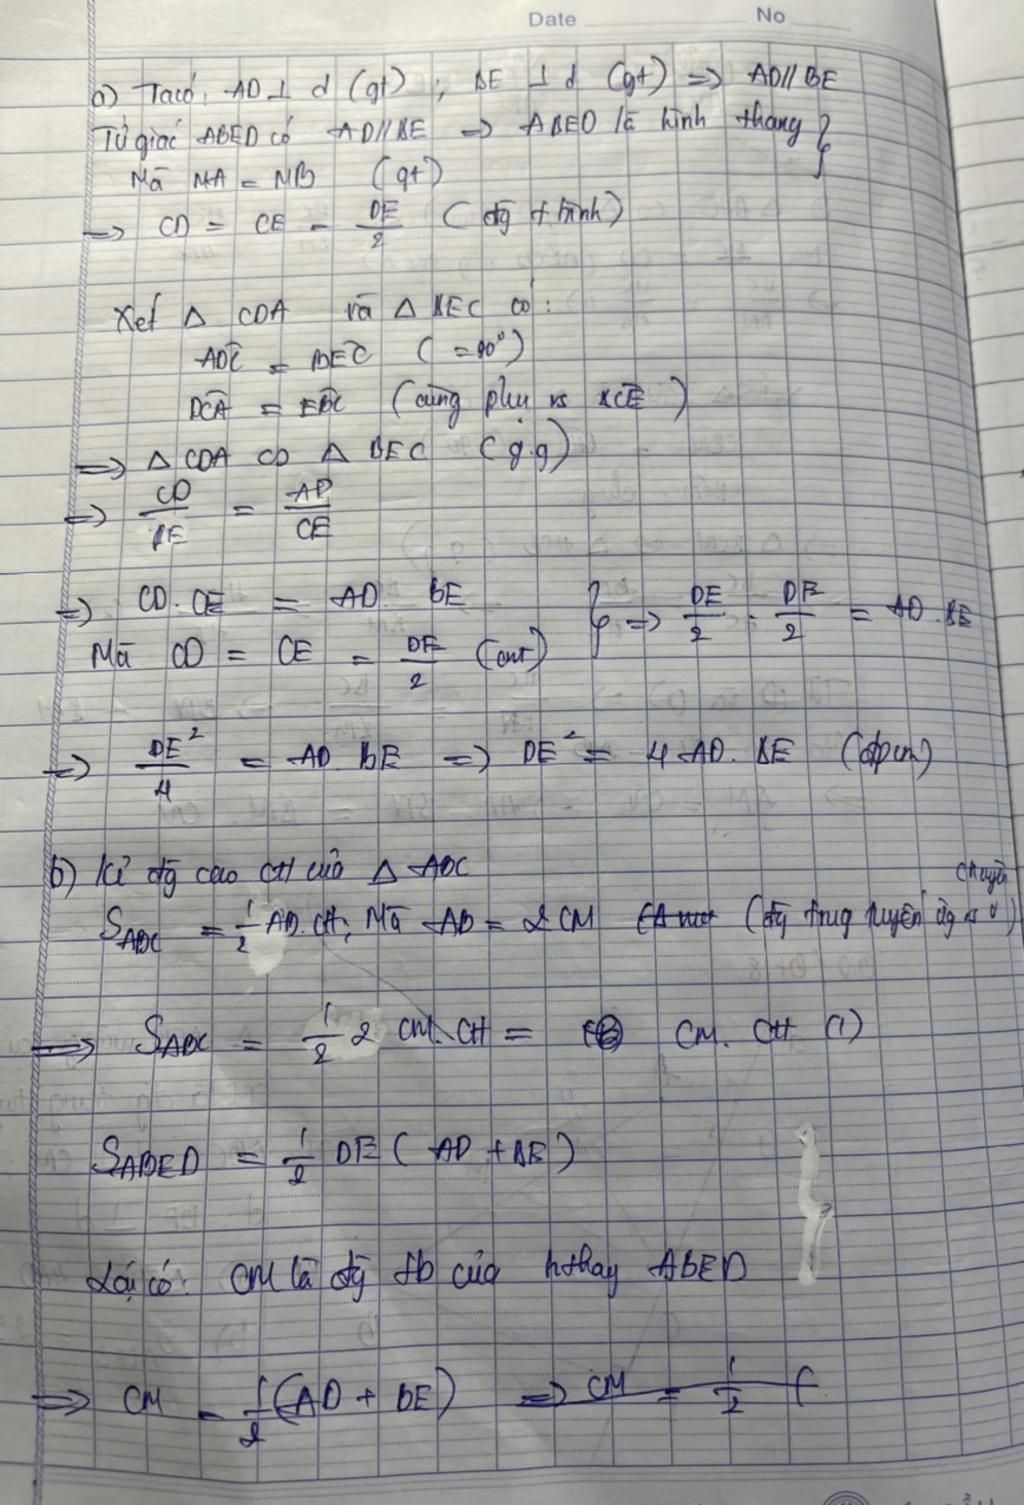 Date No
a) Ta có: AD ⊥ d (gt) ; BE ⊥ d (gt) => AD // BE
Tứ giác ABED có AD // BE => ABED là hình thang }
Mà MA = MB (gt)
=> CD = CE = DE/2 (đg t bình)
Xét △ CDA và △ BEC có:
ADC = BEC (= 90°)
DCA = EBC (cùng phụ vs BCE)
=> △ CDA ∽ △ BEC (g.g)
=> CD/BE = AD/CE
=> CD . CE = AD . BE } => DE/2 . DE/2 = AD . BE
Mà CD = CE = DE/2 (cmt)
=> DE²/4 = AD . BE => DE² = 4 AD . BE (đpcm)
b) Kẻ đg cao CH của △ ABC
chuyền
S ABC = 1/2 AB . CH, Mà AB = 2 CM (đg trug tuyến ứg vs )
=> S ABC = 1/2 2 CM . CH = CM . CH (1)
S ABED = 1/2 DE (AD + BE)
Lại có: CM là đg tb của hthag ABED
=> CM = 1/2 (AD + BE) => CM = 1/2 (